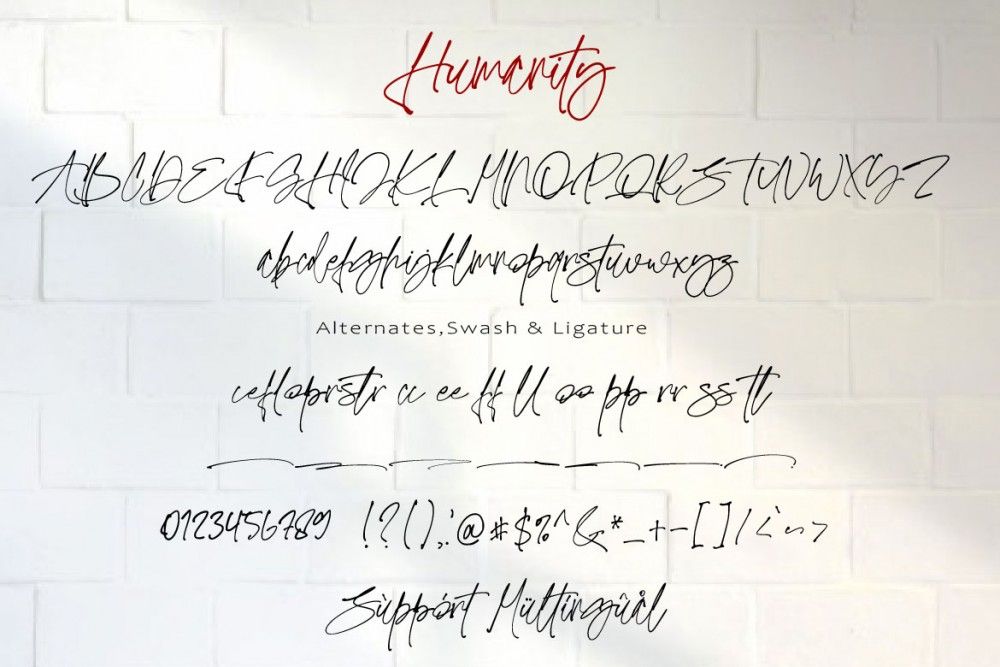 Humanity
ABCDEFGHIJKLMNOPQRSTUVWXYZ
abcdefghijklmnopqrstuvwxyz
Alternates,Swash & Ligature
cefloprstr cc ee ff ll oo pp rr ss tt
0123456789 !?(),.:@#$%^&*_+-[]/<`~>
Sùppórt Mültîngûàl